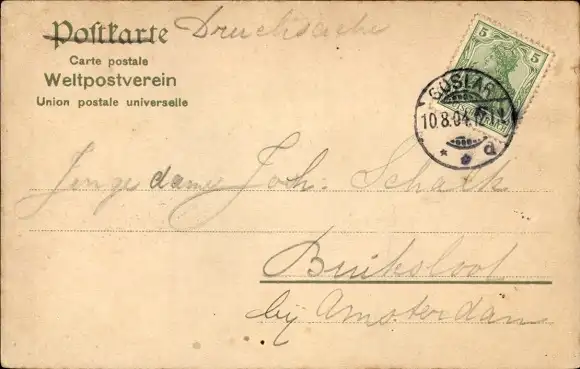 Postkarte Drucksache
Carte postale
Weltpostverein
Union postale universelle
5 5
GOSLAR
10.8.04.12
* * d
Jongedame Joh. Schalk
Buiksloot
bij Amsterdam